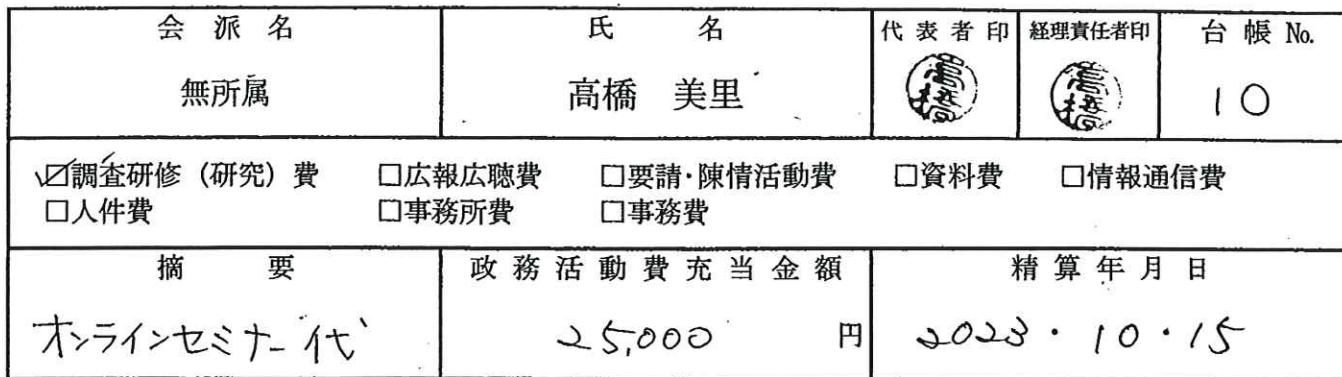 会派名 氏名 代表者印 経理責任者印 台帳No.
無所属 高橋 美里 高橋 高橋 10
☑調査研修（研究）費 □広報広聴費 □要請・陳情活動費 □資料費 □情報通信費
□人件費 □事務所費 □事務費
摘要 政務活動費充当金額 精算年月日
オンラインセミナー代 25,000 円 2023・10・15